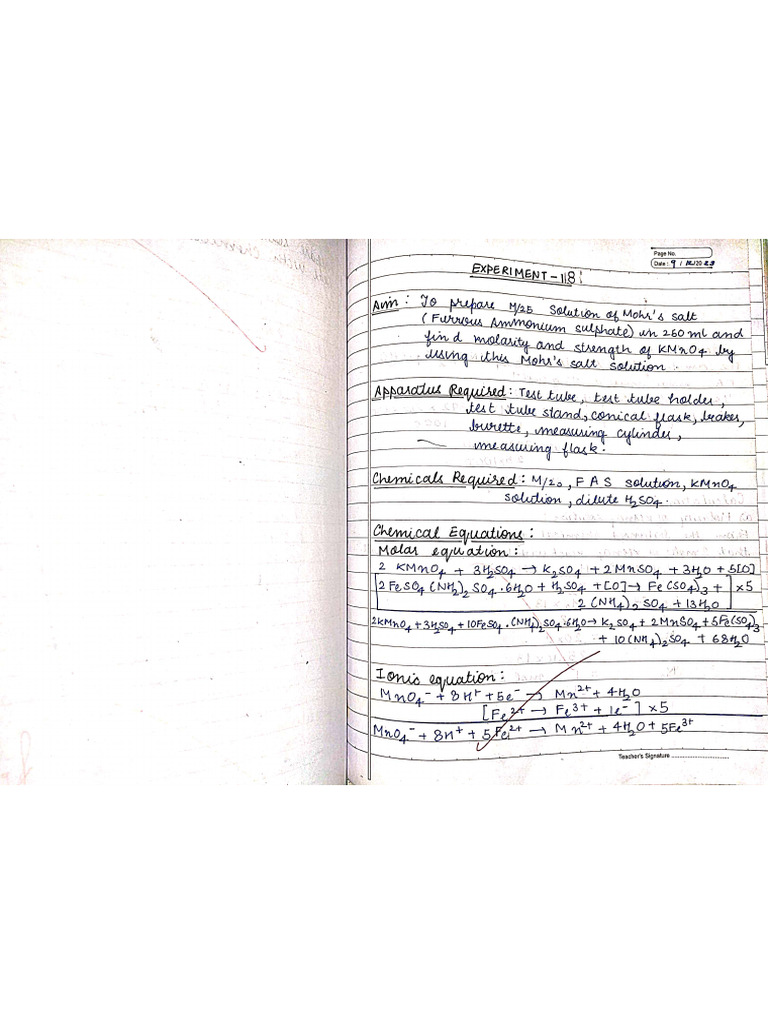 Page No.
Date : 9 / 12/20 23
EXPERIMENT - 18
Aim : To prepare M/25 solution of Mohr's salt
(Ferrous Ammonium sulphate) in 250 ml and
find molarity and strength of KMnO4 by
using this Mohr's salt solution.
Apparatus Required : Test tube, test tube holder,
test tube stand, conical flask, brakes,
burette, measuring cylinder,
measuring flask.
Chemicals Required : M/20, F A S solution, KMnO4
solution, dilute H2SO4.
Chemical Equations :
Molar equation :
2 KMnO4 + 3H2SO4 → K2SO4 + 2MnSO4 + 3H2O + 5[O]
[2FeSO4(NH2)2SO4·6H2O + H2SO4 + [O] → Fe(SO4)3 + ] ×5
2(NH4)2SO4 + 13H2O
2KMnO4 + 3H2SO4 + 10FeSO4·(NH4)2SO4·6H2O → K2SO4 + 2MnSO4 + 5Fe(SO4)3
+ 10(NH4)2SO4 + 68H2O
Ionic equation :
MnO4⁻ + 8H⁺ + 5e⁻ → Mn²⁺ + 4H2O
[Fe²⁺ → Fe³⁺ + 1e⁻] ×5
MnO4⁻ + 8H⁺ + 5Fe²⁺ → Mn²⁺ + 4H2O + 5Fe³⁺
Teacher's Signature